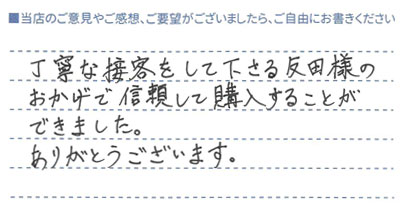 ■当店のご意見やご感想、ご要望がございましたら、ご自由にお書きください
丁寧な接客をして下さる反田様の
おかげで信頼して購入することが
できました。
ありがとうございます。